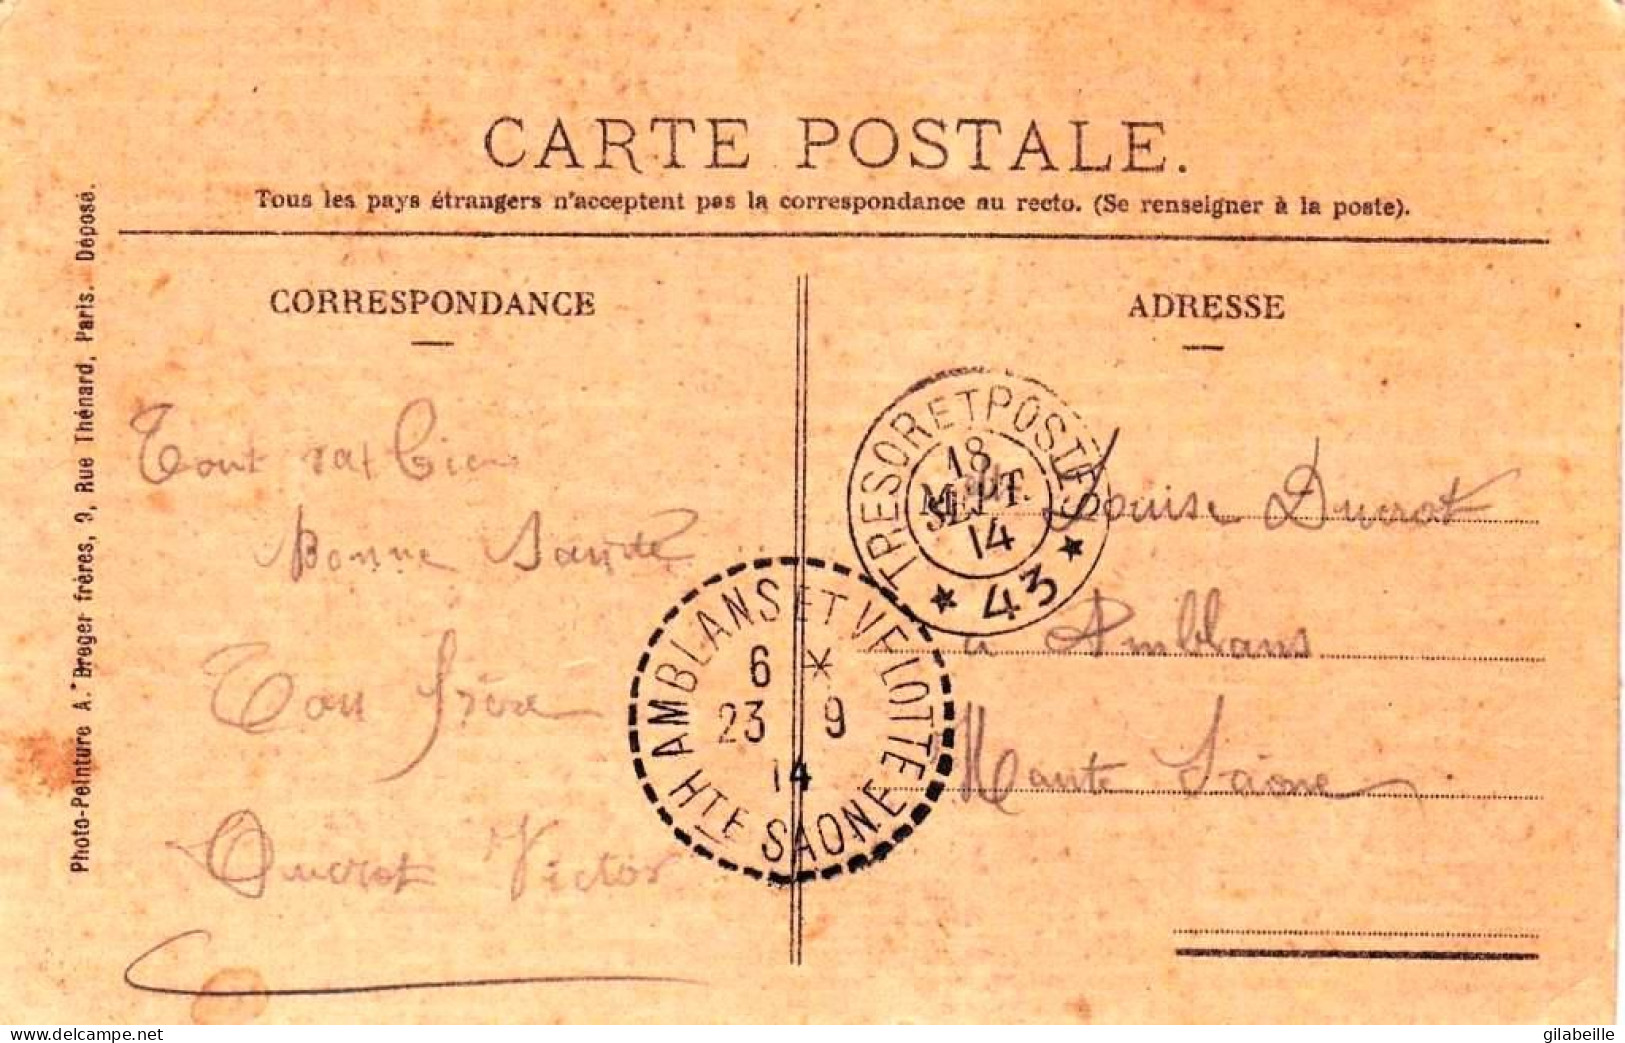 CARTE POSTALE.
Tous les pays étrangers n'acceptent pas la correspondance au recto. (Se renseigner à la poste).
Photo-Peinture A. Breger frères, 9, Rue Thénard, Paris. Déposé.
CORRESPONDANCE
Tout vat bien
Bonne Santé
Ton frère
Ducrot Victor
ADRESSE
TRESOR ET POSTES
18
SEPT.
14
★ 43 ★
Louise Ducrot
a Amblans
Haute Saône
AMBLANS ET VELOTTE
6 *
23 9
14
HTE SAONE
www.delcampe.net
gilabeille